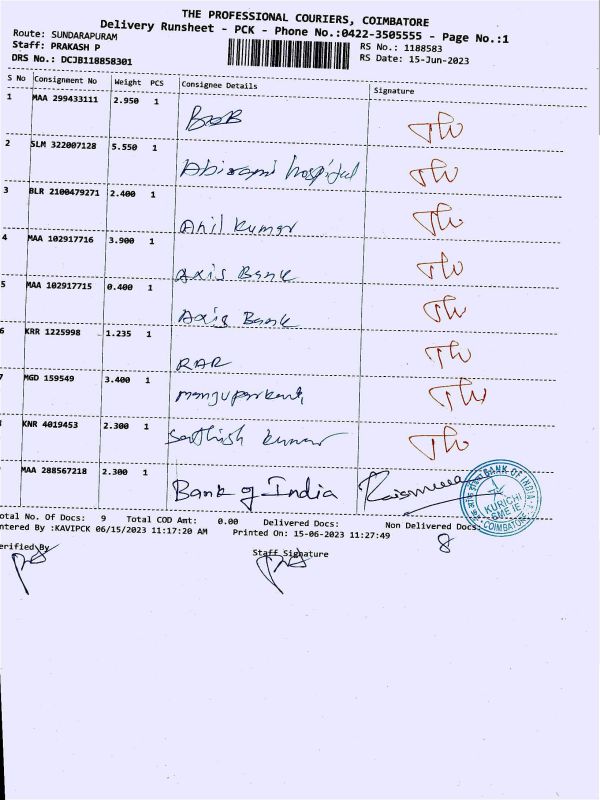 THE PROFESSIONAL COURIERS, COIMBATORE
Delivery Runsheet - PCK - Phone No.:0422-3505555 - Page No.:1
Route: SUNDARAPURAM
Staff: PRAKASH P
RS No.: 1188583
DRS No.: DCJB118858301
RS Date: 15-Jun-2023
S No Consignment No Weight PCS Consignee Details Signature
1 MAA 299433111 2.950 1
BOB
2 SLM 322007128 5.550 1
Abirami hospital
3 BLR 2100479271 2.400 1
Anil Kumar
4 MAA 102917716 3.900 1
Axis Bank
5 MAA 102917715 0.400 1
Axis Bank
6 KRR 1225998 1.235 1
RAR
7 MGD 159549 3.400 1
KNR 4019453 2.300 1
Sathish Kumar
MAA 288567218 2.300 1
Bank of India
BANK OF INDIA
KURICHI
SME IE
COIMBATORE
otal No. Of Docs: 9 Total COD Amt: 0.00 Delivered Docs: Non Delivered Docs:
ntered By :KAVIPCK 06/15/2023 11:17:20 AM Printed On: 15-06-2023 11:27:49
8
erified By Staff Signature